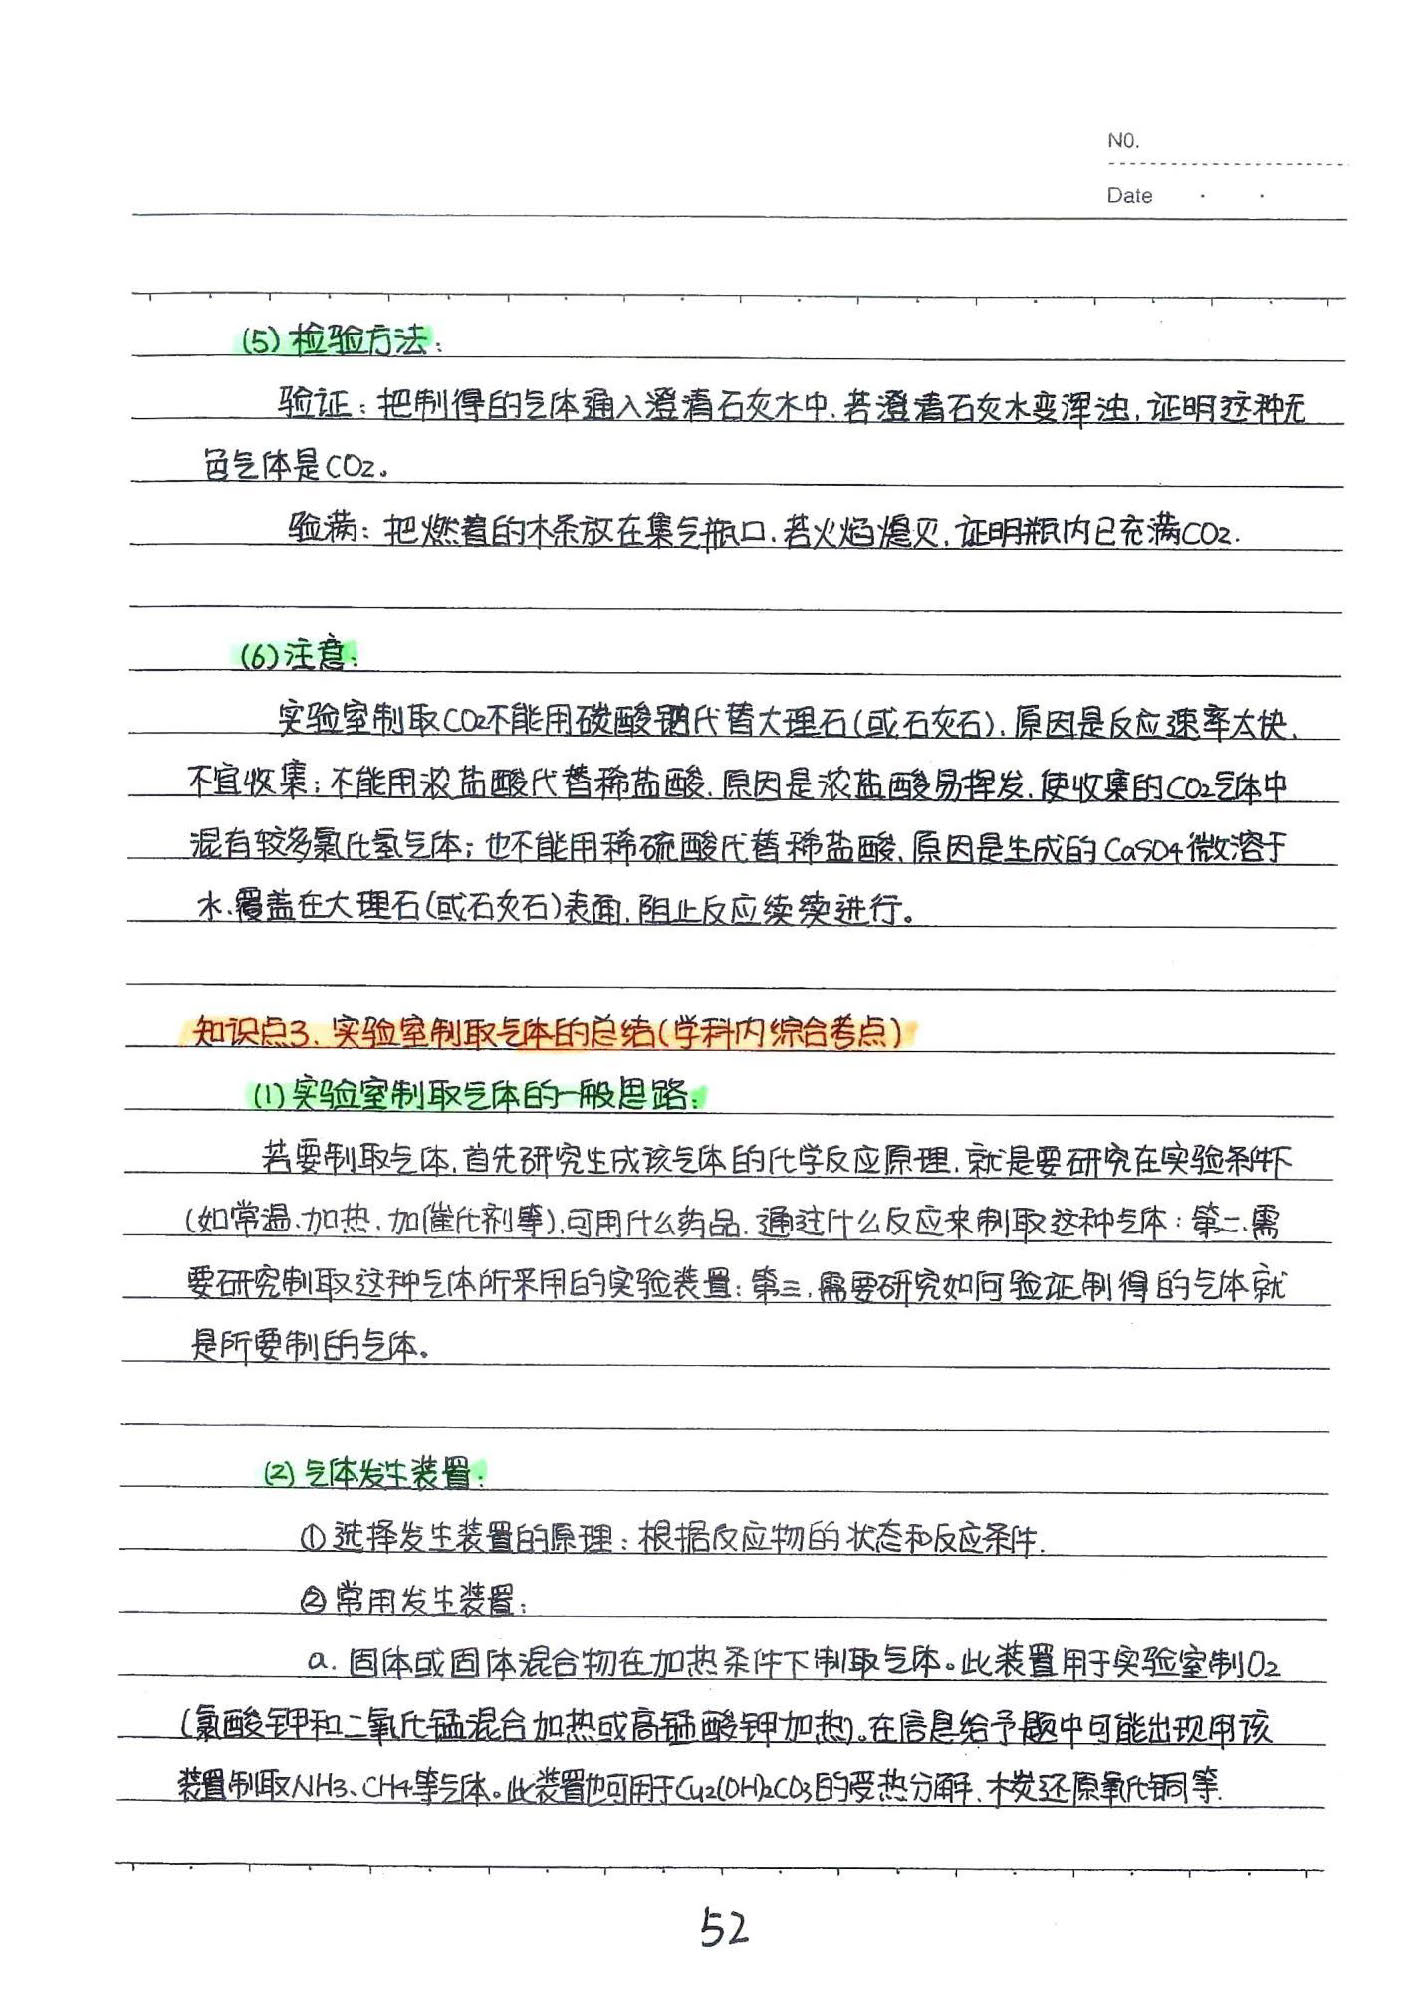 NO.
Date
(5)检验方法:
验证:把制得的气体通入澄清石灰水中,若澄清石灰水变浑浊,证明这种无
色气体是CO2。
验满:把燃着的木条放在集气瓶口,若火焰熄灭,证明瓶内已充满CO2.
(6)注意:
实验室制取CO2不能用碳酸钠代替大理石(或石灰石),原因是反应速率太快,
不宜收集;不能用浓盐酸代替稀盐酸,原因是浓盐酸易挥发,使收集的CO2气体中
混有较多氯化氢气体;也不能用稀硫酸代替稀盐酸,原因是生成的CaSO4微溶于
水,覆盖在大理石(或石灰石)表面,阻止反应续续进行。
知识点3.实验室制取气体的总结(学科内综合考点)
(1)实验室制取气体的一般思路:
若要制取气体,首先研究生成该气体的化学反应原理,就是要研究在实验条件下
(如常温、加热、加催化剂等),可用什么药品,通过什么反应来制取这种气体:第二,需
要研究制取这种气体所采用的实验装置:第三,需要研究如何验证制得的气体就
是所要制的气体。
(2)气体发生装置:
①选择发生装置的原理:根据反应物的状态和反应条件.
②常用发生装置:
a.固体或固体混合物在加热条件下制取气体。此装置用于实验室制O2
(氯酸钾和二氧化锰混合加热或高锰酸钾加热)。在信息给予题中可能出现用该
装置制取NH3、CH4等气体。此装置也可用于Cu2(OH)2CO3的受热分解、木炭还原氧化铜等.
52